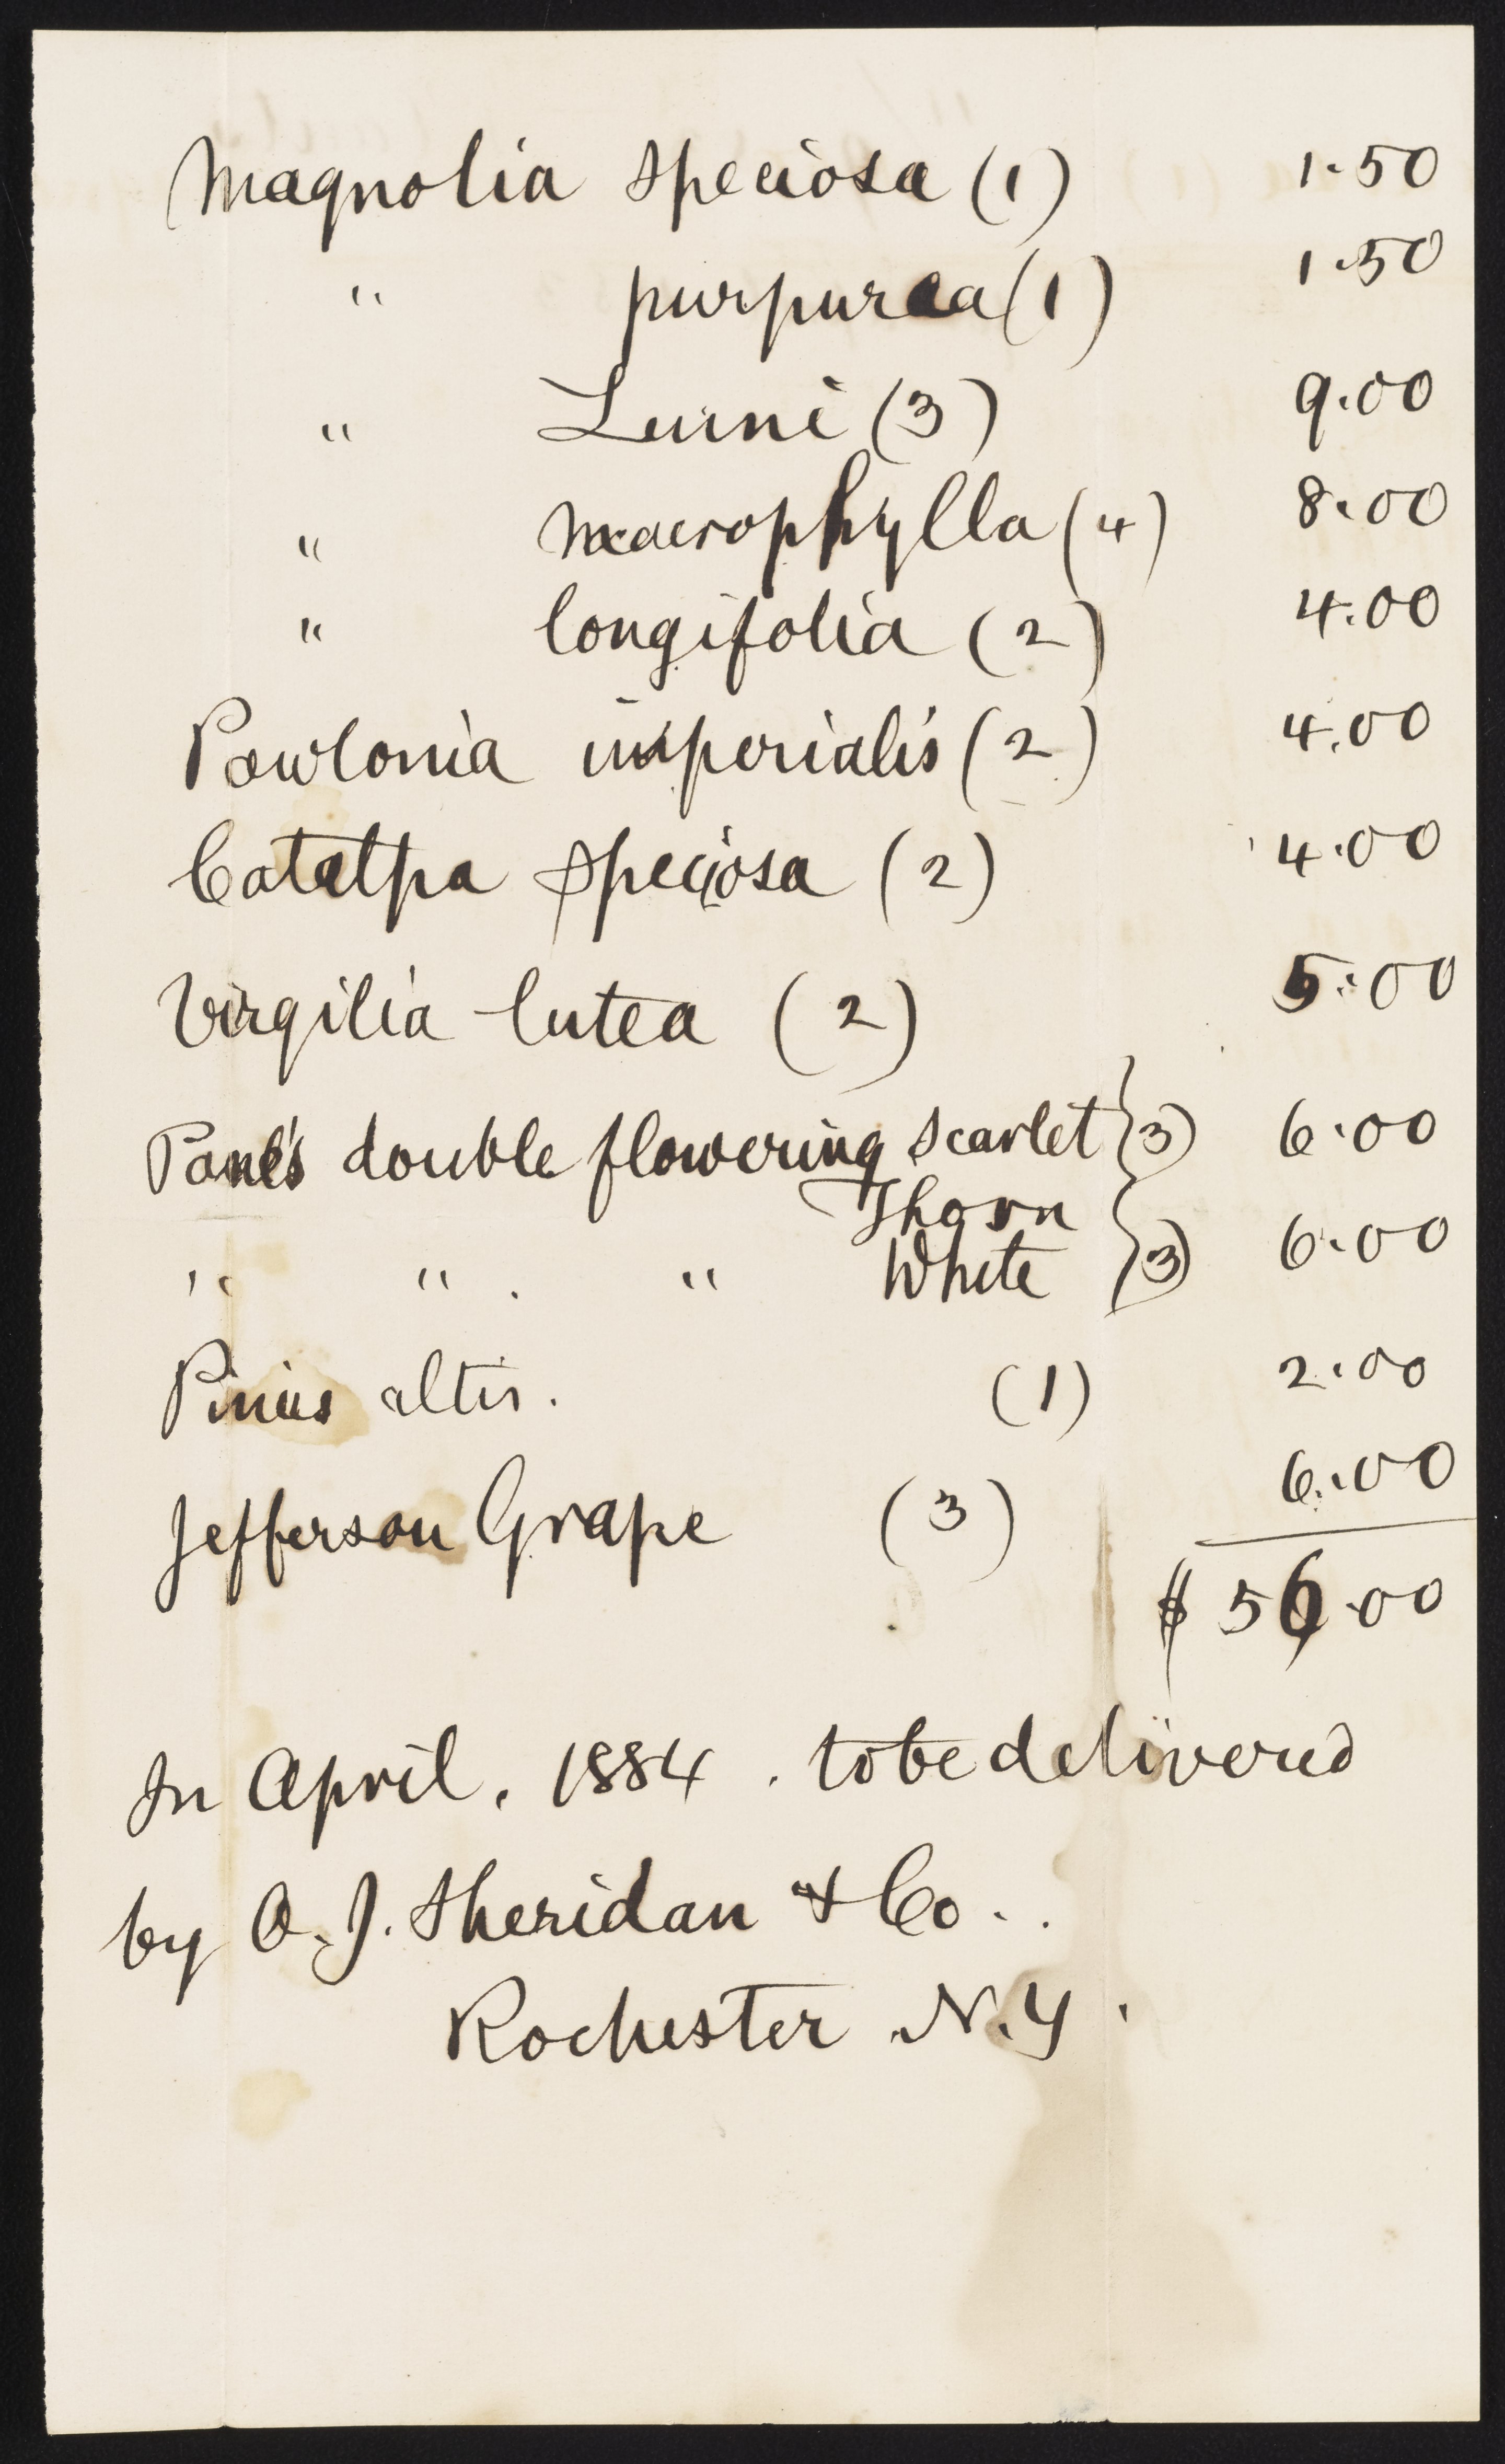 Magnolia speciosa (1) 1.50
" purpurea (1) 1.50
" Leune (3) 9.00
" macrophylla (4) 8.00
" longifolia (2) 4.00
Pawlonia imperialis (2) 4.00
Catalpa speciosa (2) 4.00
Virgilia lutea (2) 5.00
Paul's double flowering Scarlet } (3) 6.00
Thorn
" " " White } (3) 6.00
Pinus (1) 2.00
Jefferson Grape (3) 6.00
$ 56.00
In April, 1884. to be delivered
by O. J. Sheridan & Co..
Rochester N.Y.